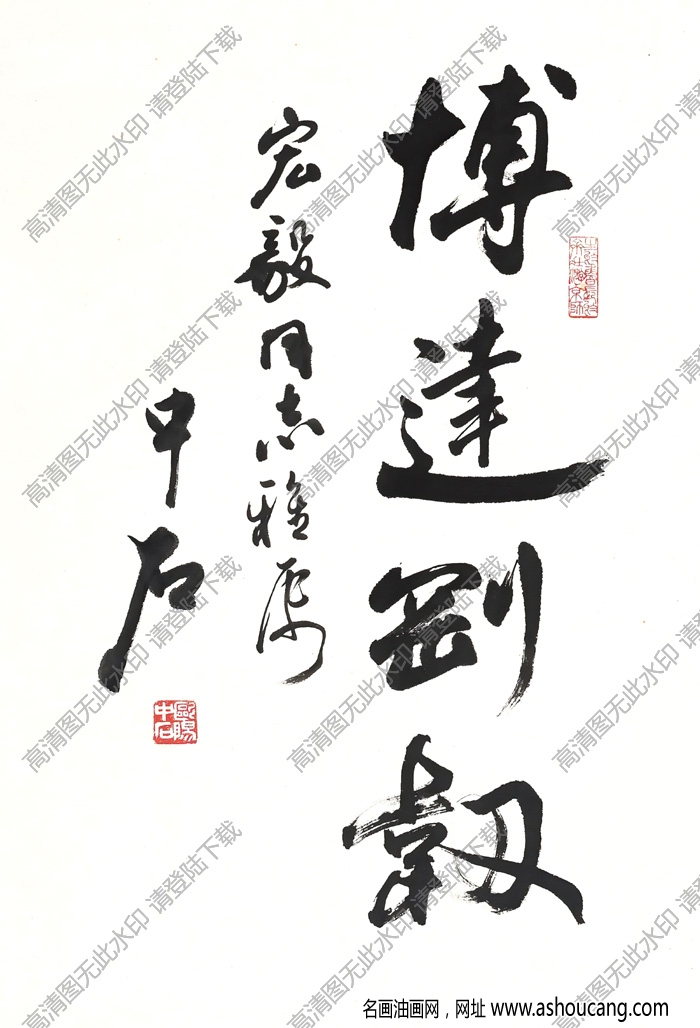 博達剛毅
宏毅同志雅属
中石
歐陽中石
高清图无此水印 请登陆下载
高清图无此水印 请登陆下载
高清图无此水印
高清图无此水印 请登陆下载
高清图无此水印 请登陆下载
高清图无此水印
高清图无此水印 请登陆下载
高清图无此水印 请登陆下载
高清图无此水印
高清图无此水印 请登陆下载
高清图无此水印 请登陆下载
高清图无此水印
名画油画网，网址 www.ashoucang.com